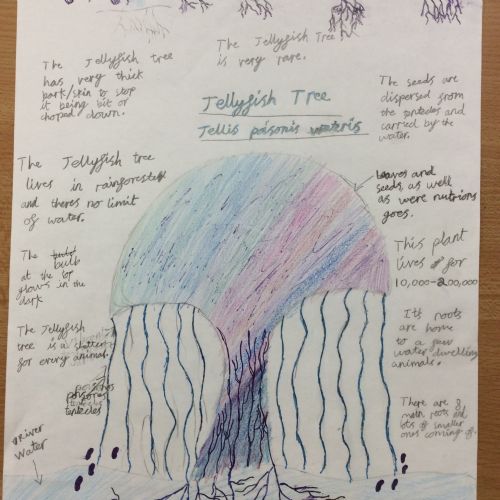 The Jellyfish tree
has very thick
bark/skin to stop
it being bit or
choped down.
The Jellyfish Tree
is very rare.
Jellyfish Tree
Jellis poisonis wateris
The seeds are
dispersed from
the tentecles and
carried by the
water.
The Jellyfish tree
lives in rainforests
and theres no limit
of water.
Leaves and
seeds as well
as were nutrions
goes.
The
bulb
at the top
glows in the
dark
This plant
lives for
10,000-200,000
The Jellyfish
tree is a shelter
for every animal.
Its roots
are home
to a few
water dwelling
animals.
poisonos
tentacles
There are 8
main roots and
lots of smaller
ones coming of.
River
water